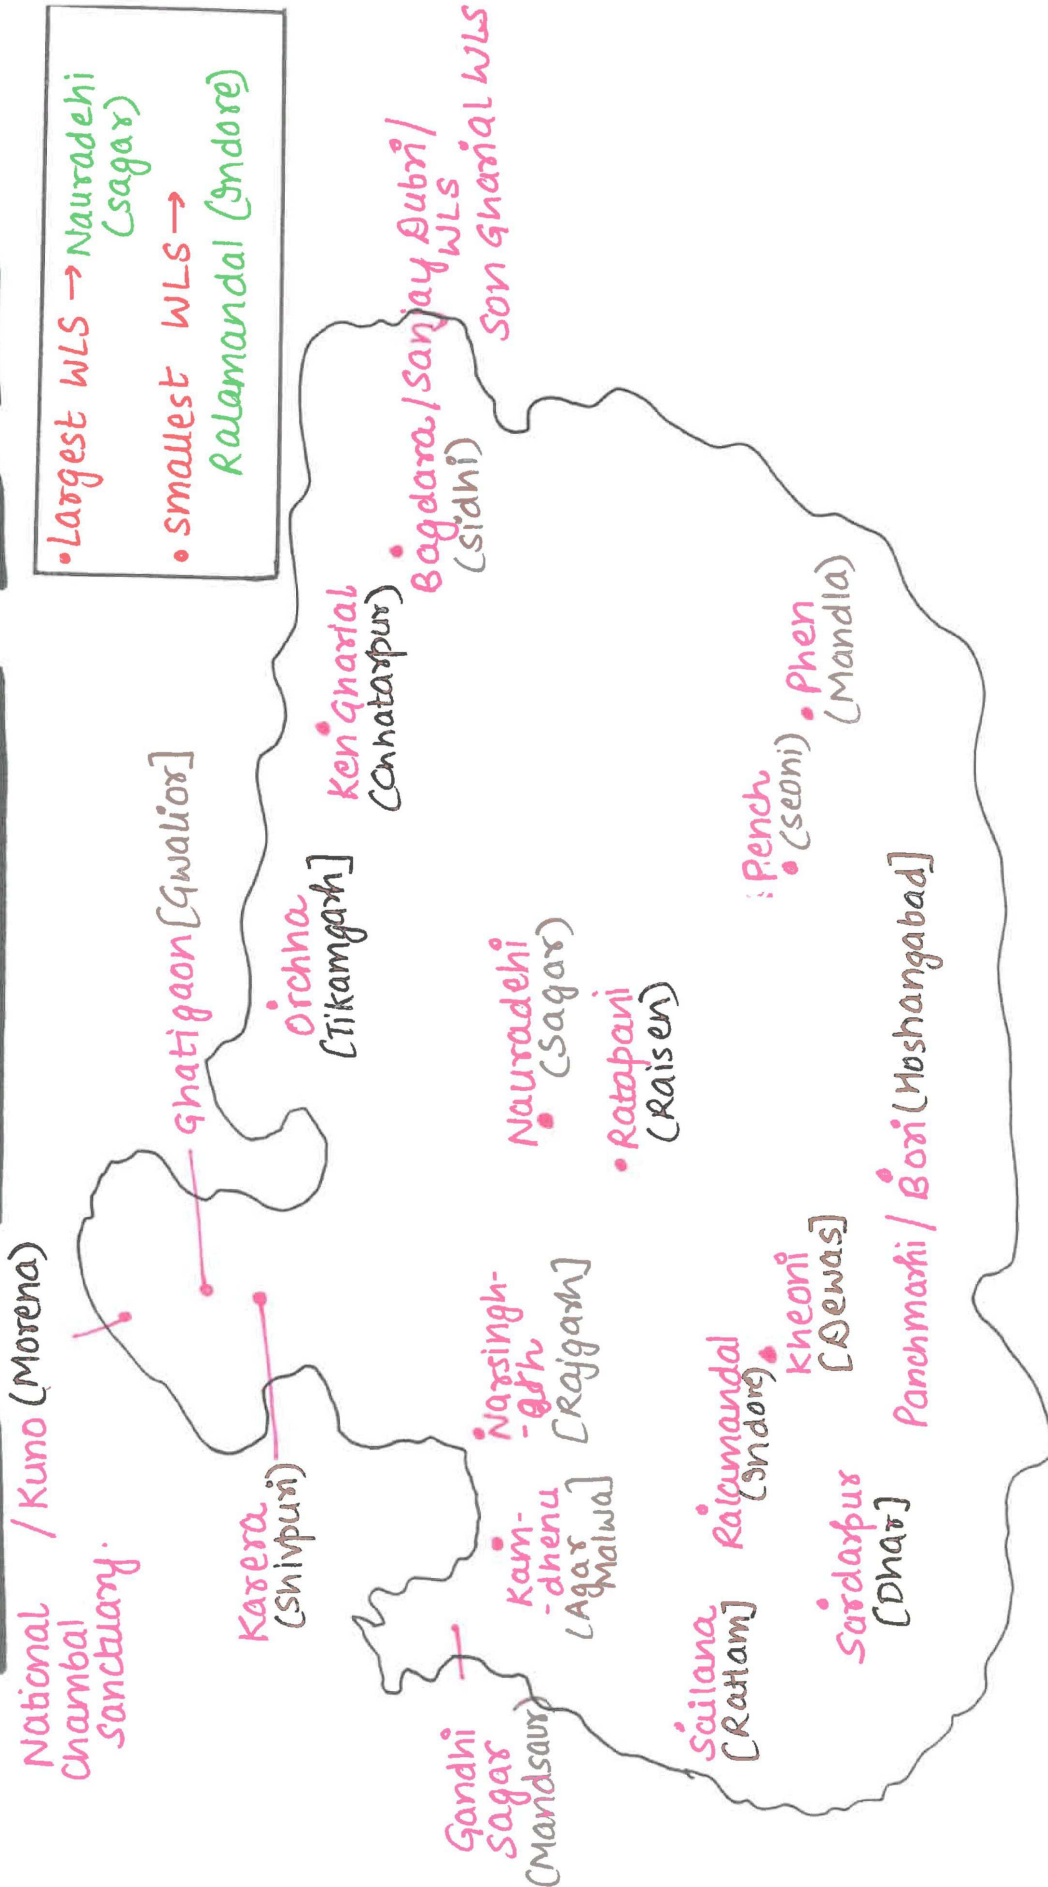 • Largest WLS → Nauradehi
(Sagar)
• smallest WLS →
Ralamandal (Indore)
National / Kuno (Morena)
Chambal
Sanctuary.
Ghatigaon [Gwalior]
Karera
(Shivpuri)
Orchha
[Tikamgarh]
Ken Gharial
(Chhatarpur)
Bagdara / Sanjay Dubri /
WLS
(Sidhi)
Son Gharial WLS
Gandhi
Sagar
(Mandsaur)
Kam-
-dhenu
(Agar
Malwa]
Narsingh-
-grh
[Rajgarh]
Nauradehi
(Sagar)
Ratapani
(Raisen)
Sailana
[Ratlam]
Ralamandal
(Indore)
Kheoni
[Dewas]
Pench
(Seoni)
Phen
(Mandla)
Sardarpur
[Dhar]
Panchmarhi / Bori (Hoshangabad]